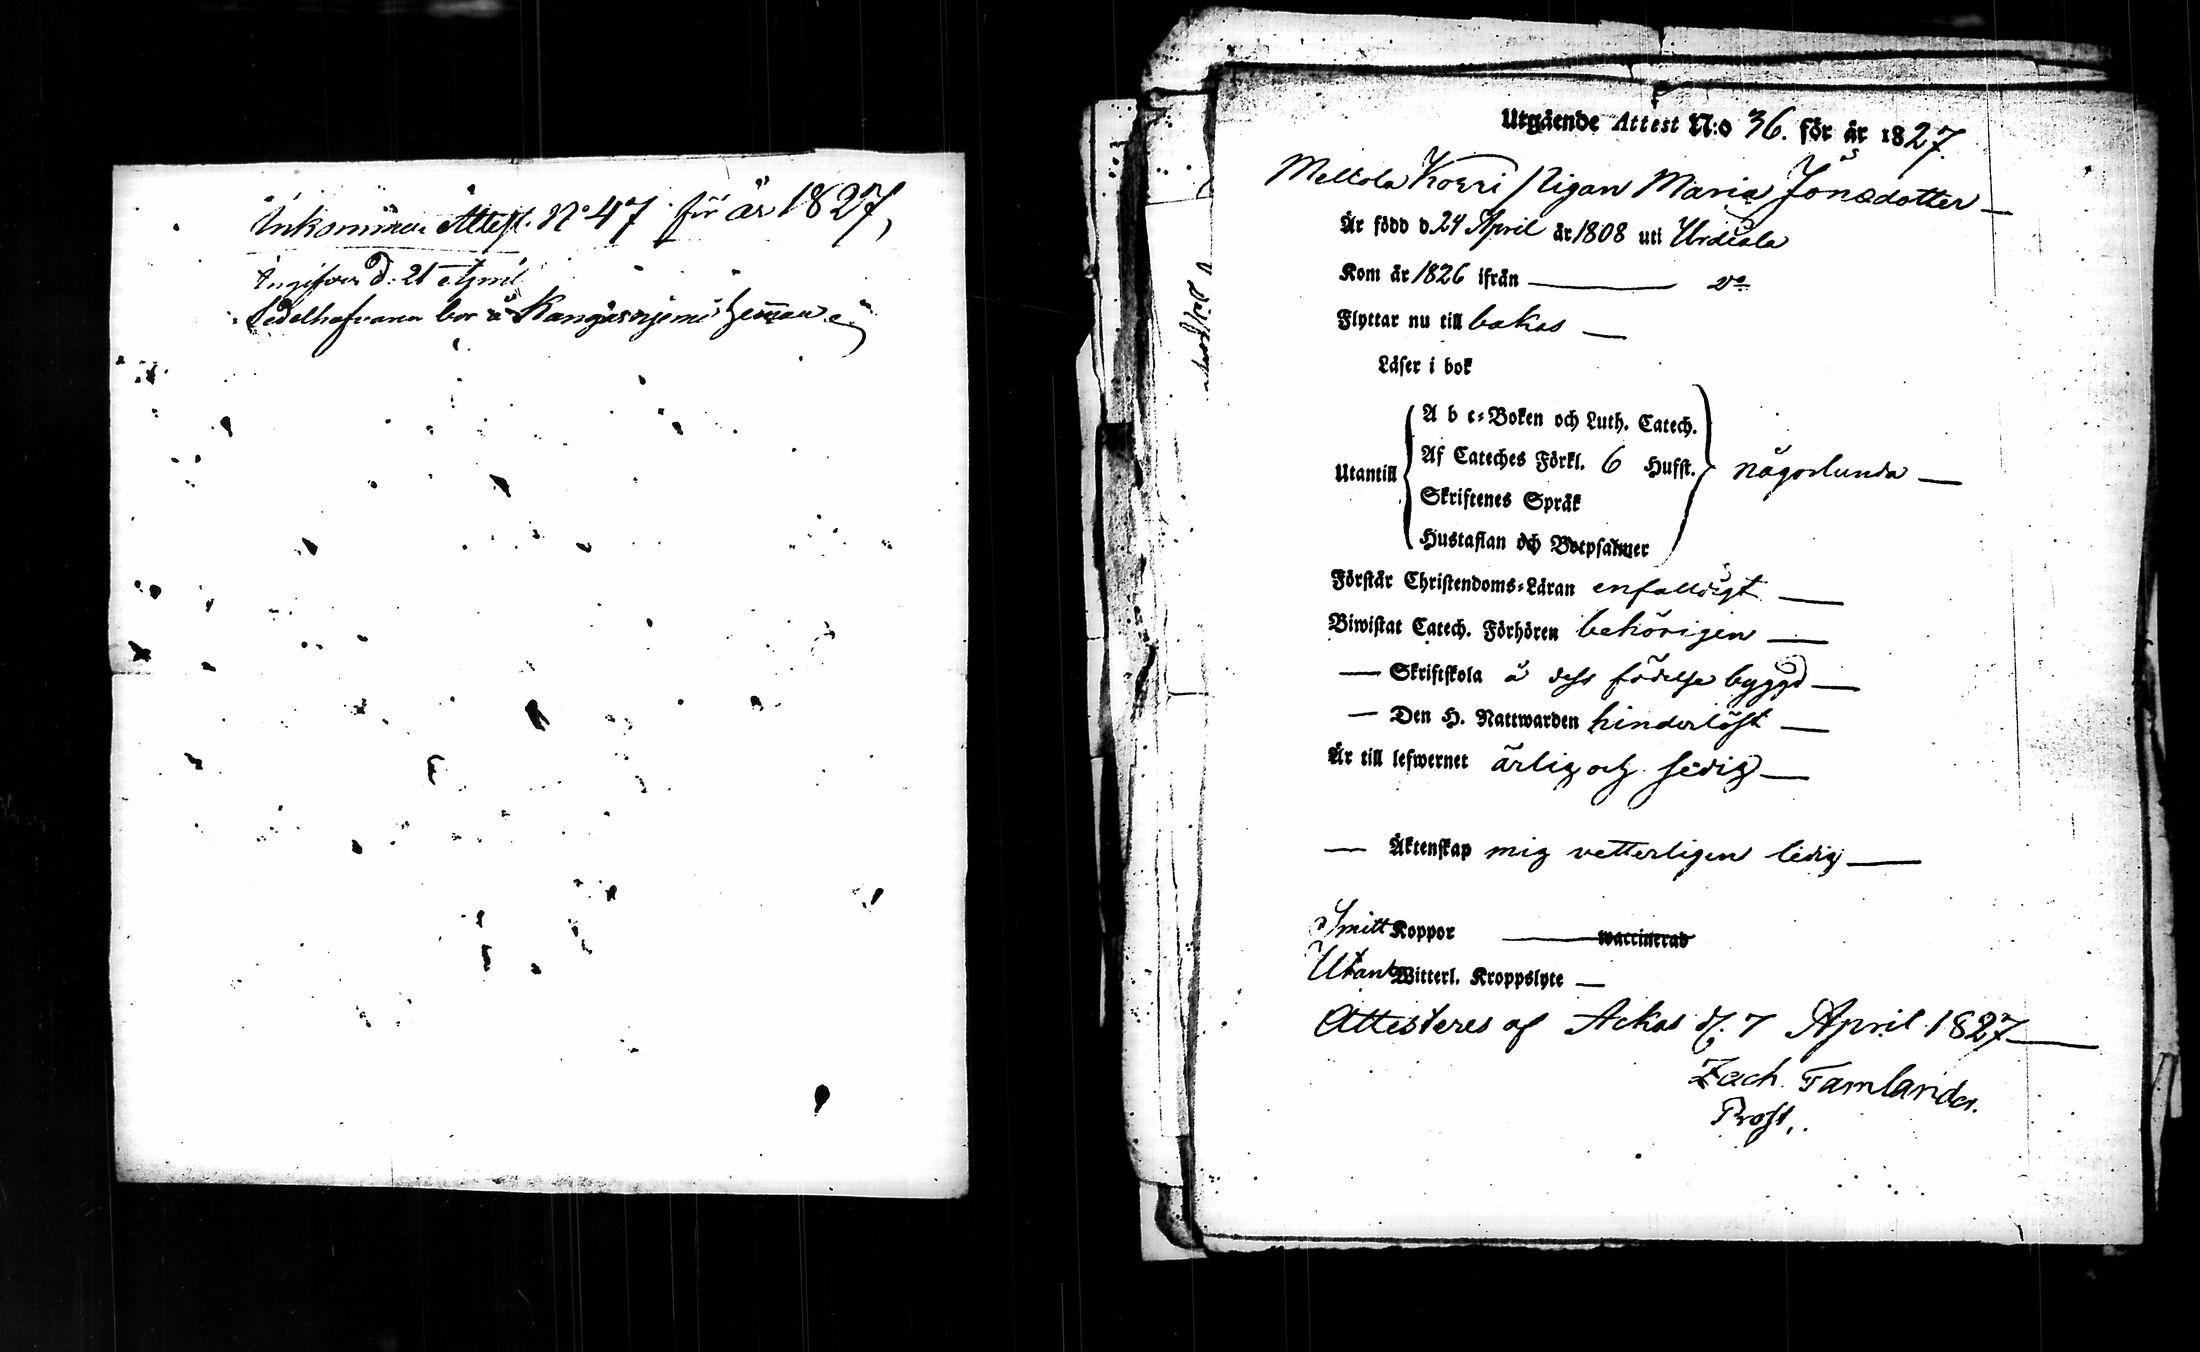 Inkommen Attest. N° 47 för år 1827,
Ingifven d: 21 April
Sedelhafvaren bor å Kangasniemi hemman
Utgående Attest N:o 36. för år 1827.
Mellola Korri Pigan Maria Jonsdotter
Är född d. 24 April år 1808 uti Urdiala
Kom år 1826 ifrån — do
Flyttar nu till bakas —
Läser i bok
A b c-Boken och Luth. Catech.
Af Cateches Förkl. 6 Hufst.
Utantill någorlunda —
Skriftenes Språk
Hustaflan och Botpsalmer
Förstår Christendoms-Läran enfalldigt —
Biwistat Catech. Förhören behörigen —
— Skriftskola å dess födelse byggd —
— Den H. Nattwarden hinderlöst —
Är till lefwernet ärlig och sedig —
— Äktenskap mig vetterligen ledig —
Smitt Koppor — waccinerad
Utan Witterl. Kroppslyte —
Attesteres af Ackas d. 7 April 1827 —
Zach. Tamlander.
Prost.